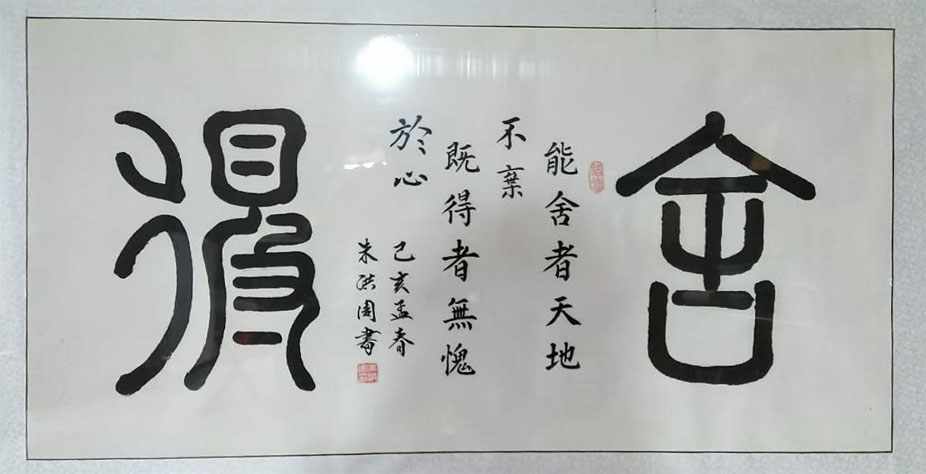 舍
能舍者天地
不棄
既得者無愧
於心
己亥孟春
朱洪周書
得